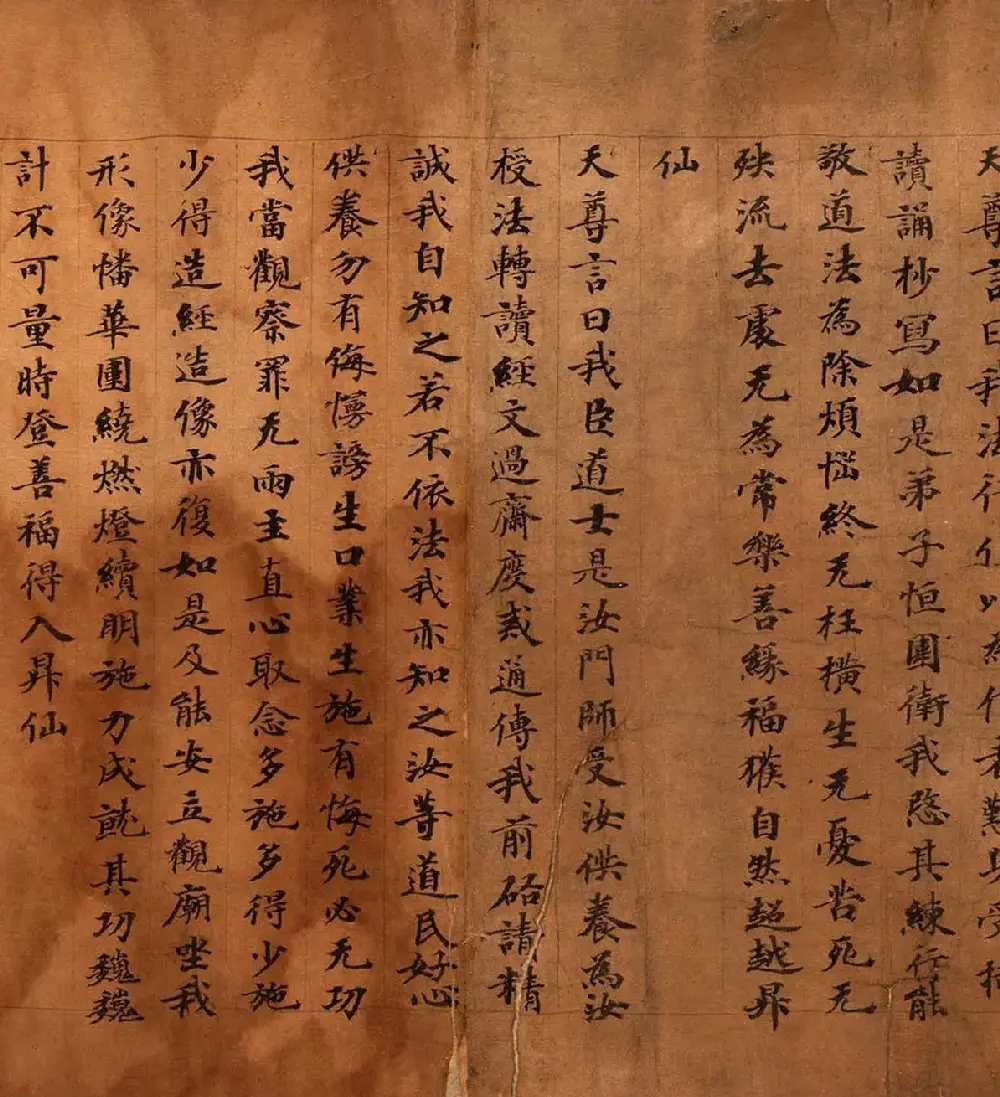 天尊言曰我法行
讀誦抄寫如是弟子恒圍衛我愍其練行能
敬道法為除煩惱終无枉橫生无憂苦死无
殃流去處无為常樂善緣福獲自然超越昇
仙
天尊言曰我臣道士是汝門師受汝供養為汝
授法轉讀經文過齋度戒通傳我前啓請精
誠我自知之若不依法我亦知之汝等道民好心
供養勿有侮慢謗生口業生施有悔死必无功
我當觀察罪无雨主直心取念多施多得少施
少得造經造像亦復如是及能安立觀廟坐我
形像幡華圍繞燃燈續明施力成就其功巍巍
計不可量時登善福得入昇仙